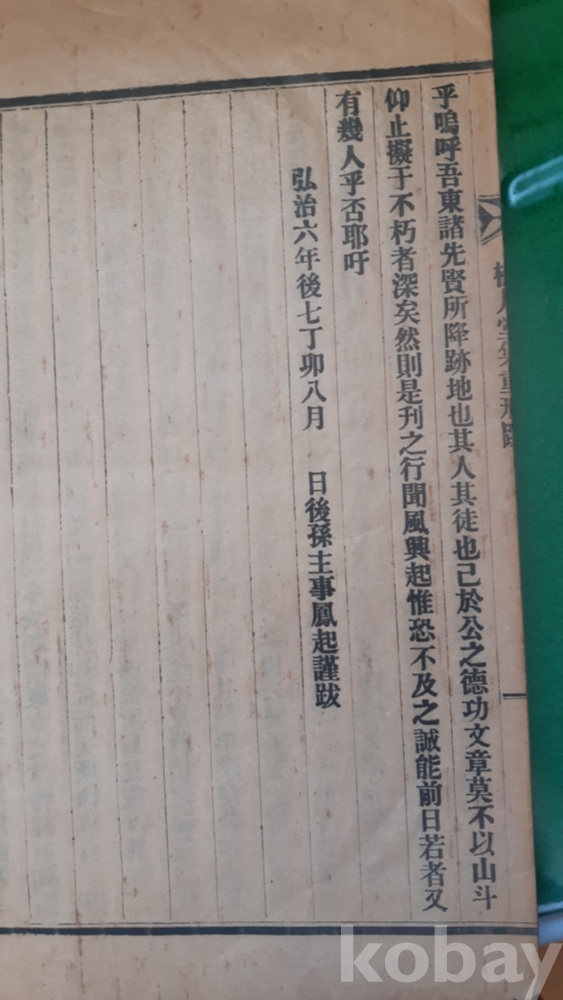 乎嗚呼吾東諸先賢所降跡地也其人其徒也己於公之德功文章莫不以山斗
仰止擬于不朽者深矣然則是刊之行聞風興起惟恐不及之誠能前日若者又
有幾人乎否耶吁
弘治六年後七丁卯八月 日後孫主事鳳起謹跋
堂集重刊
kobay